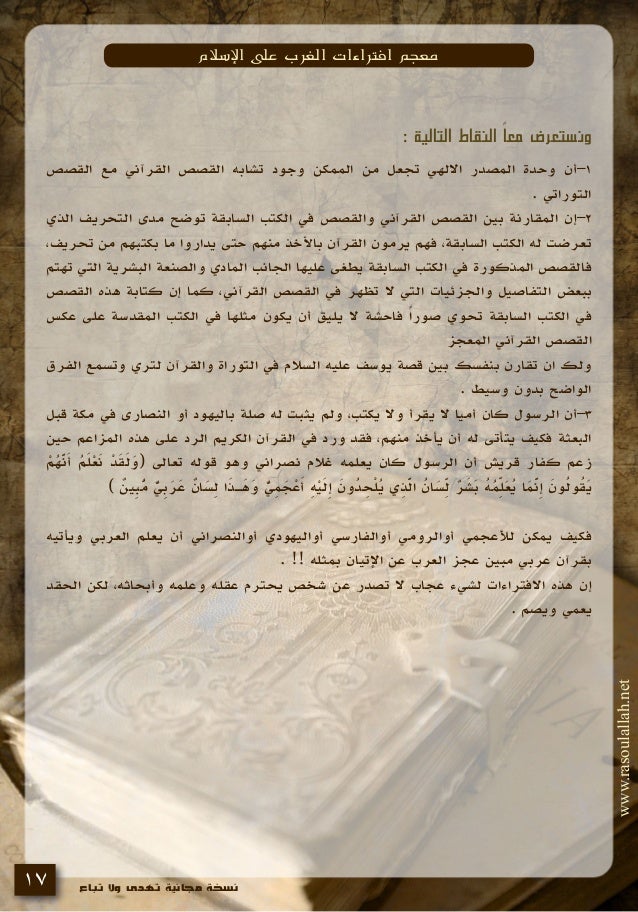 معجم افتراءات الغرب على الإسلام
ونستعرض معاً النقاط التالية :
١-أن وحدة المصدر الالهي تجعل من الممكن وجود تشابه القصص القرآني مع القصص
التوراتي .
٢-إن المقارنة بين القصص القرآني والقصص في الكتب السابقة توضح مدى التحريف الذي
تعرضت له الكتب السابقة، فهم يرمون القرآن بالأخذ منهم حتى يداروا ما بكتبهم من تحريف،
فالقصص المذكورة في الكتب السابقة يطغى عليها الجانب المادي والصنعة البشرية التي تهتم
ببعض التفاصيل والجزئيات التي لا تظهر في القصص القرآني، كما إن كتابة هذه القصص
في الكتب السابقة تحوي صوراً فاحشة لا يليق أن يكون مثلها في الكتب المقدسة على عكس
القصص القرآني المعجز
ولك ان تقارن بنفسك بين قصة يوسف عليه السلام في التوراة والقرآن لتري وتسمع الفرق
الواضح بدون وسيط .
٣-أن الرسول كان أميا لا يقرأ ولا يكتب، ولم يثبت له صلة باليهود أو النصارى في مكة قبل
البعثة فكيف يتأتى له أن يأخذ منهم، فقد ورد في القرآن الكريم الرد على هذه المزاعم حين
زعم كفار قريش أن الرسول كان يعلمه غلام نصراني وهو قوله تعالى (وَلَقَدْ نَعْلَمُ أَنَّهُمْ
يَقُولُونَ إِنَّمَا يُعَلِّمُهُ بَشَرٌ لِّسَانُ الَّذِي يُلْحِدُونَ إِلَيْهِ أَعْجَمِيٌّ وَهَـذَا لِسَانٌ عَرَبِيٌّ مُّبِينٌ )
فكيف يمكن للأعجمي أوالرومي أوالفارسي أواليهودي أوالنصراني أن يعلم العربي ويأتيه
بقرآن عربي مبين عجز العرب عن الإتيان بمثله !! .
إن هذه الافتراءات لشيء عجاب لا تصدر عن شخص يحترم عقله وعلمه وأبحاثه، لكن الحقد
يعمي ويصم .
www.rasoulallah.net
١٧
نسخة مجانية تهدى ولا تباع